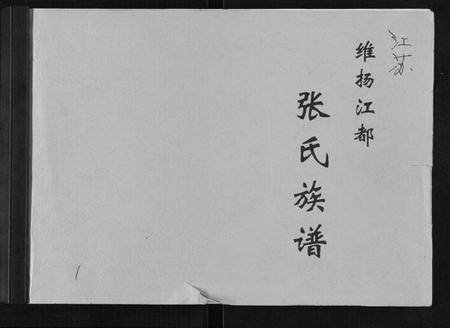 江苏
维扬江都
张氏族谱